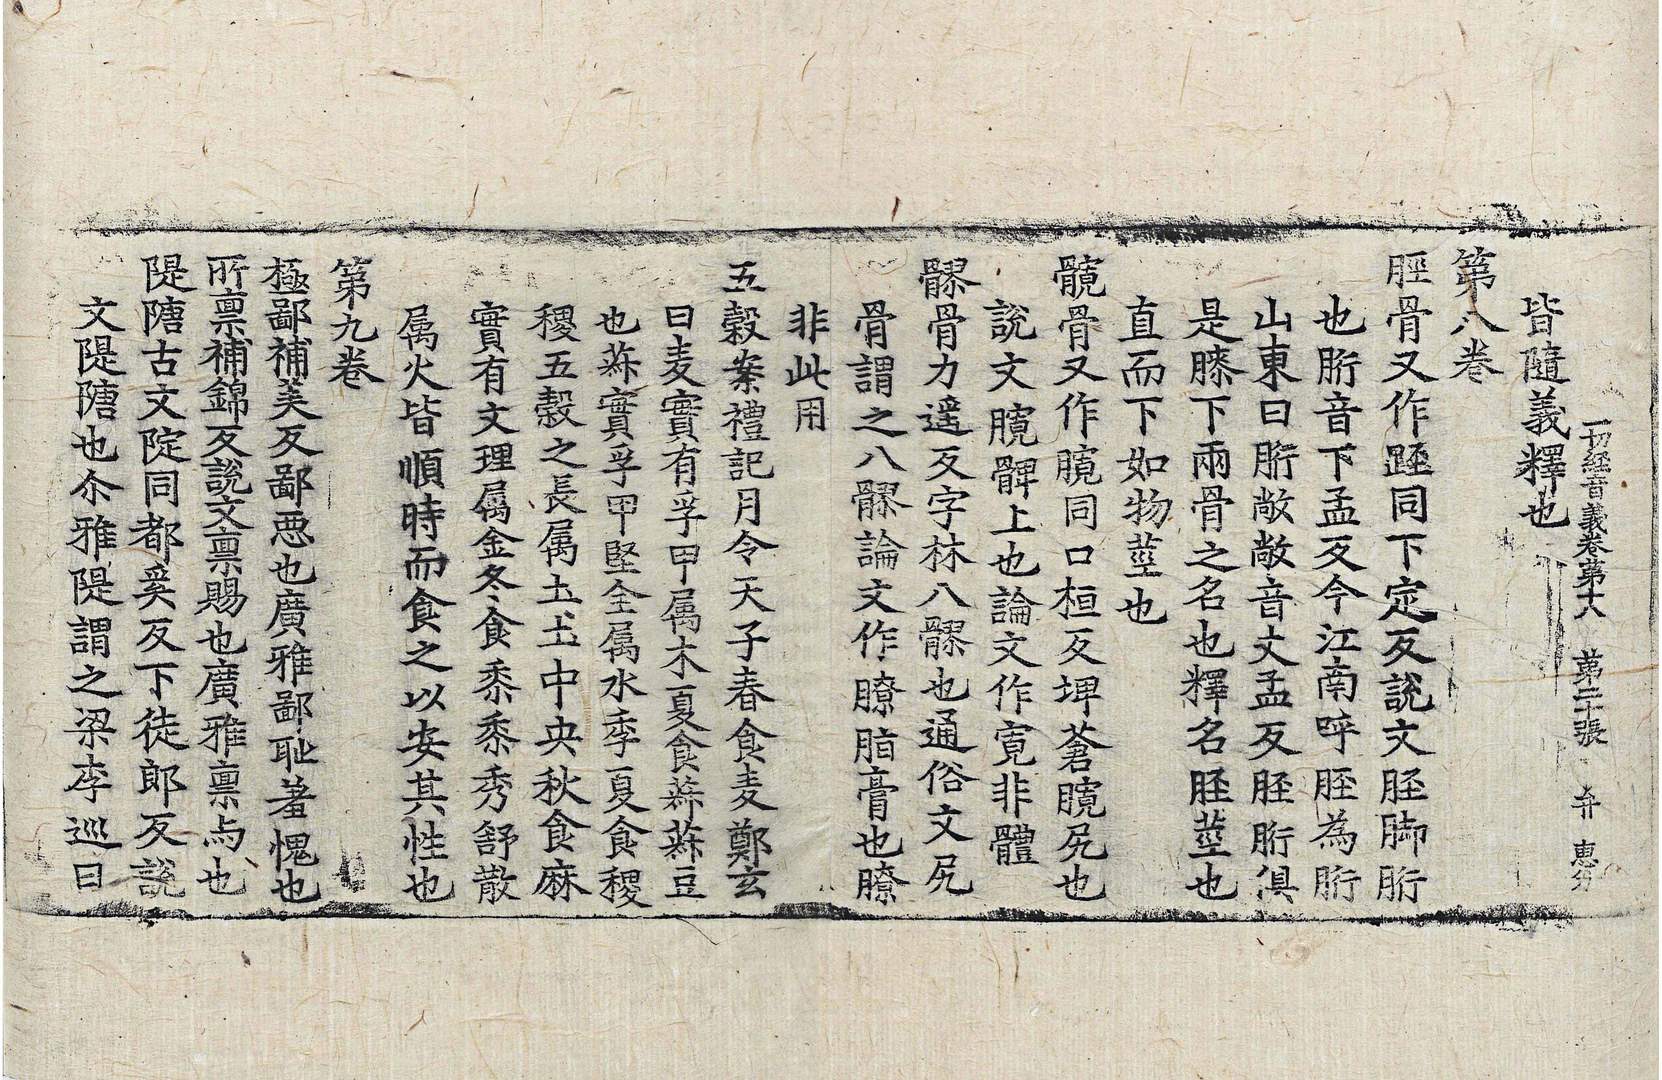 一切経音義卷第十八 第二十張 弁 惠分
皆隨義釋也
第八卷
脛骨又作踁同下定反說文胫脚胻
也胻音下孟反今江南呼胫為胻
山東曰胻敞敞音丈孟反胫胻俱
是膝下兩骨之名也釋名胫莖也
直而下如物莖也
髖骨又作臗同口桓反埤蒼臗尻也
說文臗髀上也論文作寛非體
髎骨力遥反字林八髎也通俗文尻
骨謂之八髎論文作膫脂膏也膫
非此用
五穀案禮記月令天子春食麦鄭玄
曰麦實有孚甲属木夏食菽菽豆
也菽實孚甲堅全属水季夏食稷
稷五穀之長属土土中央秋食麻
實有文理属金冬食黍黍秀舒散
属火皆順時而食之以安其性也
第九卷
極鄙補美反鄙惡也廣雅鄙耻羞愧也
所禀補錦反說文禀賜也廣雅禀与也
隄隄古文阺同都奚反下徒郎反說
文隄隄也尒雅隄謂之梁李巡曰